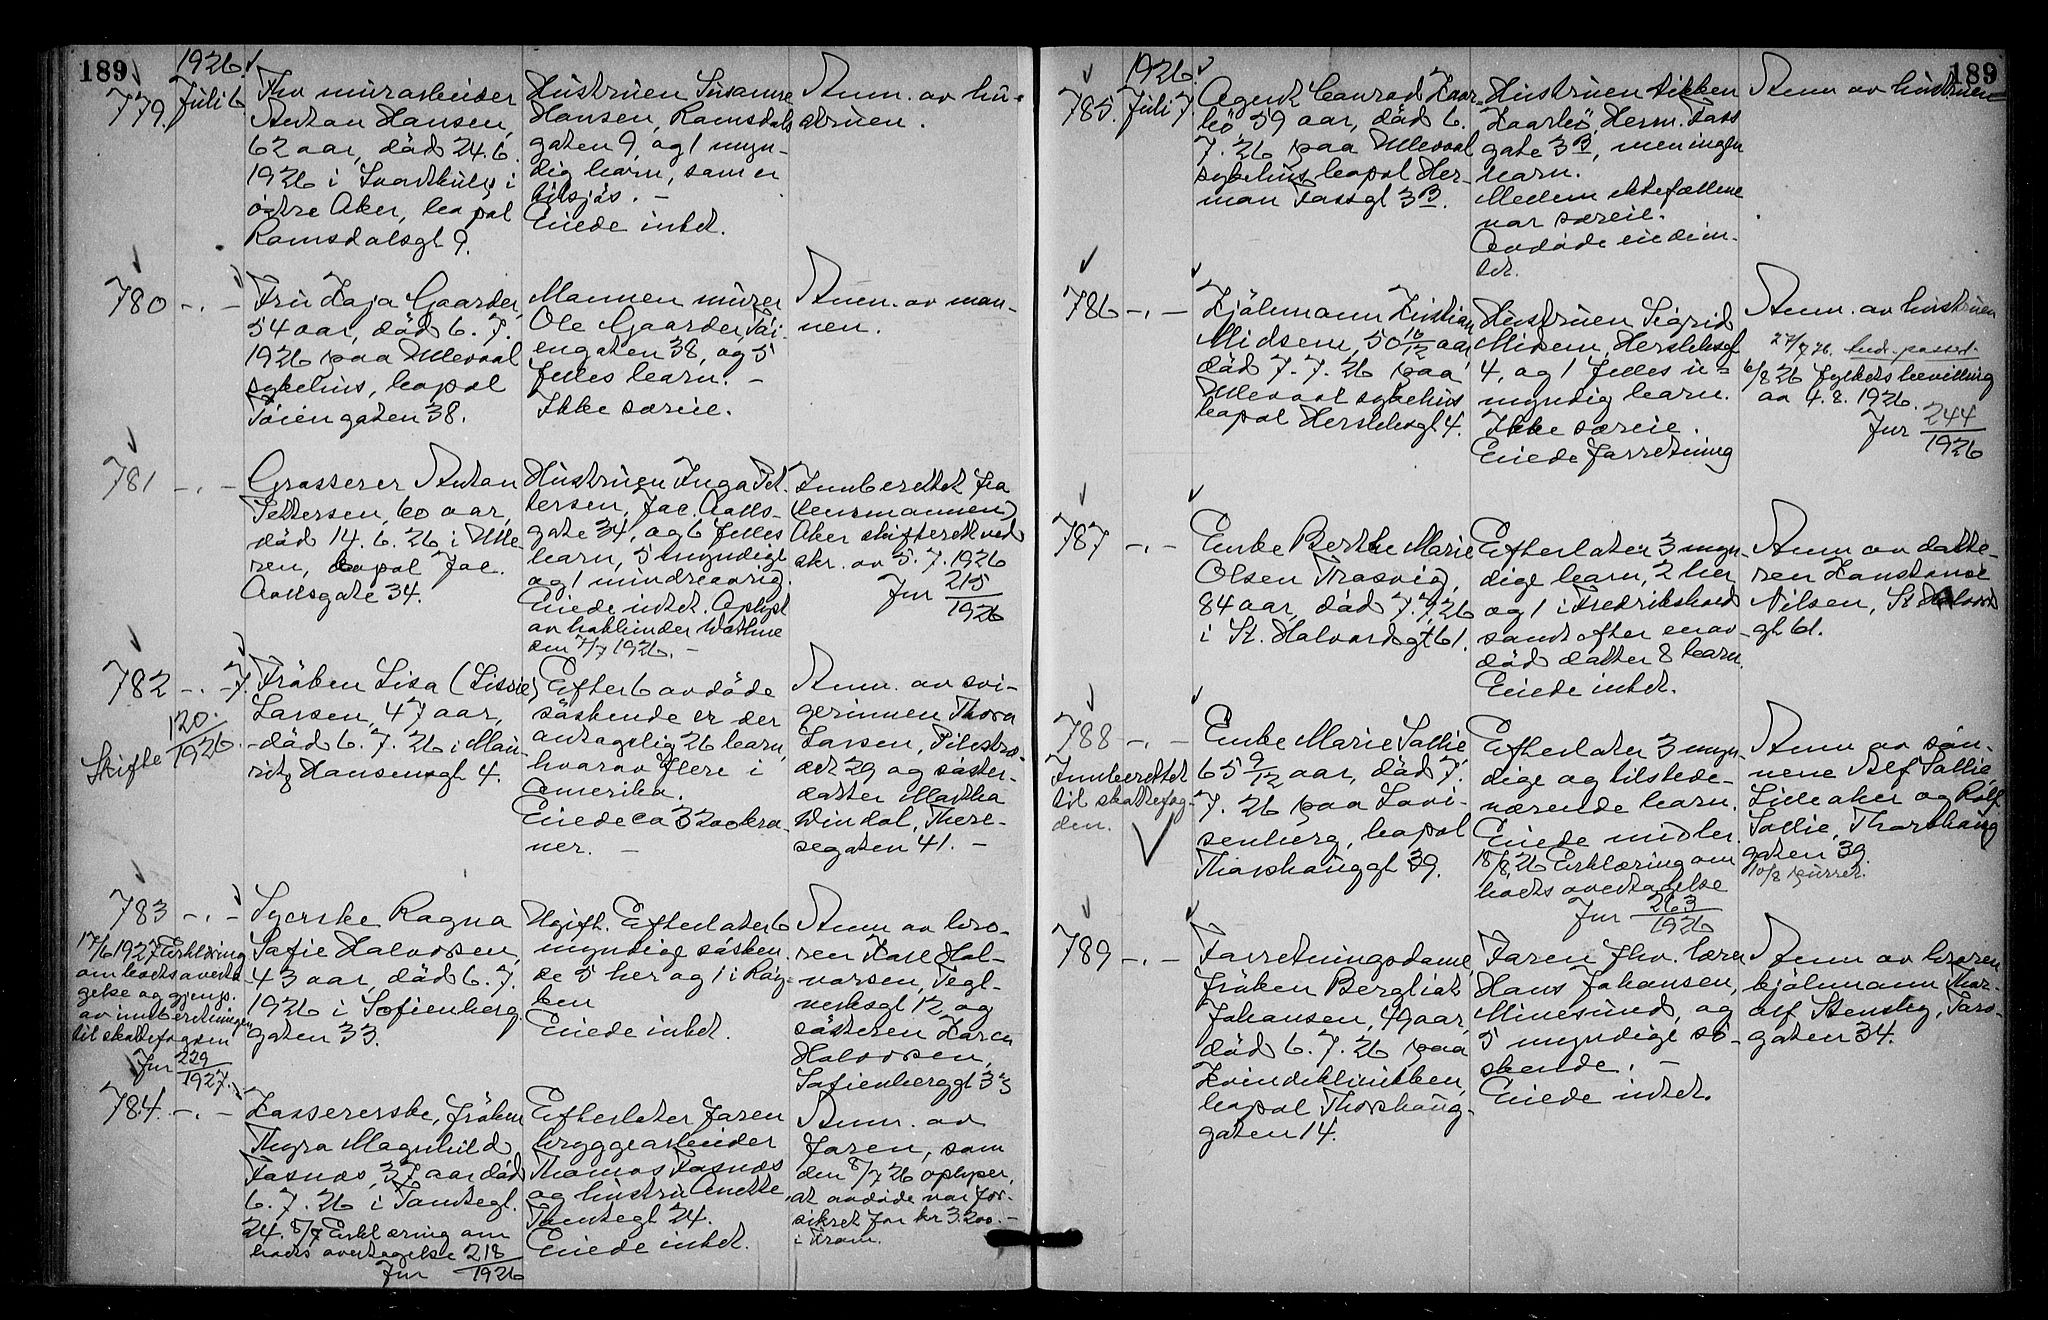 189
1926.
779.
Juli 6
Fhv murarbeider
Anton Hansen,
62 aar, död 24.6.
1926 i
östre Aker, bopæl
Ramsdalsgt 9.
Hustruen Susanne
Hansen, Ramsdals
gaten 9, og 1 myn-
dig barn, som er
tilsjös. -
Eiede intet.
Anm. av hu-
struen.
780 -.-
Fru Kaja Gaarder,
54 aar, död 6.7.
1926 paa Ullevaal
sykehus, bopæl
Töiengaten 38.
Mannen murer
Ole Gaarder, Töi-
engaten 38, og 5
fælles barn. -
Ikke særeie.
Anm. av man-
nen.
781 -.-
Grosserer Anton
Pettersen, 60 aar,
död 14.6.26 i
bopæl Jac.
Aallsgate 34.
Hustruen Inga Pet-
tersen, Jac. Aalls-
gate 34, og 6 fælles
barn, 5 myndige
og 1 mindreaarig.
Eiede intet. Oplyst
av
den 7/7 1926. -
Innberettet fra
(lensmannen)
Aker skifterett ved
skr. av 5.7.1926
Jnr 215/1926
782 -.- 7.
Skifte 120/1926.
Fröken Lisa (Lissie)
Larsen, 47 aar,
död 6.7.26 i Mau-
ritz Hansensgt 4.
Efter 6 avdöde
söskende er der
antagelig 26 barn,
hvorav flere i
Amerika.
Eiede ca 3200 kro-
ner. -
Anm. av svi-
gerinnen Thora
Larsen, Pilestræ-
det 29 og söster-
datter Martha
Windal, There-
segaten 41. -
783 -.-
17/6 1927 Erklæring
om boets overta-
gelse og gjenp.
av innberetningen
til skattefogden
Jnr 229/1927.
Syerske Ragna
Sofie Halvorsen,
43 aar, död 6.7.
1926 i Sofienberg
gaten 33.
Ugift. Efterlater 6
myndige sösken-
de 5 her og 1 i Röy-
ken
Eiede intet.
Anm av bro-
ren Karl Hal-
vorsen, Tegl-
verksgt 12 og
sösteren Karen
Halvorsen,
Sofienberggt 33
784. -.-
Kassererske, fröken
Thyra Magnhild
Fosnæs, 37 aar död
6.7.26 i Tomtegt.
24. 8/7 Erklæring om
boets overtagelse 218/1926
Jnr
Efterlater faren
bryggearbeider
Thomas Fosnæs
og hustru Anette,
Tomtegt 24.
Eiede intet.
Anm. av
faren, som
den 8/7 26 oplyser,
at avdöde var for-
sikret for kr 3200.-
i Fram.
189
1926.
785. Juli 7.
Agent Conrad Kaar-
bö, 59 aar, död 6.
7.26 paa Ullevaal
sykehus bopæl Her-
man Fossgt 3B.
Hustruen
Kaarbö, Herm. Foss
gate 3B, men ingen
barn.
Mellem ektefællene
var særeie.
Avdöde eiede in-
tet.
Anm av hustruen
786 -.-
Kjölmann Kristian
Midsem, 50 10/12 aar
död 7.7.26 paa
Ullevaal sykehus
bopæl Herslebsgt 4.
Hustruen Sigrid
Midsem, Herslebsgt
4, og 1 fælles u-
myndig barn.
Ikke særeie.
Eiede forretning
Anm. av hustruen
27/7 26.
6/8 26 Fylkets bevilling
av 4.8.1926.
Jnr 244/1926
787 -.-
Enke Berthe Marie
Olsen Trosvig,
84 aar, död 7.7.26
i St. Halvardsgt 61.
Efterlater 3 myn-
dige barn, 2 her
og 1 i Fredrikstad
samt efter en av-
död datter 8 barn.
Eiede intet.
Anm av datte-
ren Konstanse
Nilsen, St Halvards
gt 61.
788 -.-
Innberettet
til skattefog-
den.
Enke Marie Sollie
65 9/12 aar, död 7.
7.26 paa Lovi-
senberg, bopæl
Thorshauggt 39.
Efterlater 3 myn-
dige og tilstede-
værende barn.
Eiede midler.
18/8 26 Erklæring om
boets overtagelse
Jnr 263/1926
Anm av sön-
nene Alf Sollie,
Lilleaker og Rolf
Sollie, Thorshaug
gaten 39.
10/8 purret.
789 -.-
Forretningsdame
fröken Bergliot
Johansen, 49 aar,
död 6.7.26 paa
Kvindeklinikken,
bopæl Thorshaug-
gaten 14.
Faren fhv. lærer
Hans Johansen,
Minesund, og
5 myndige sö-
skende. -
Eiede intet.
Anm av broren
kjölmann Thor-
olf Stensby, Fos-
gaten 34.